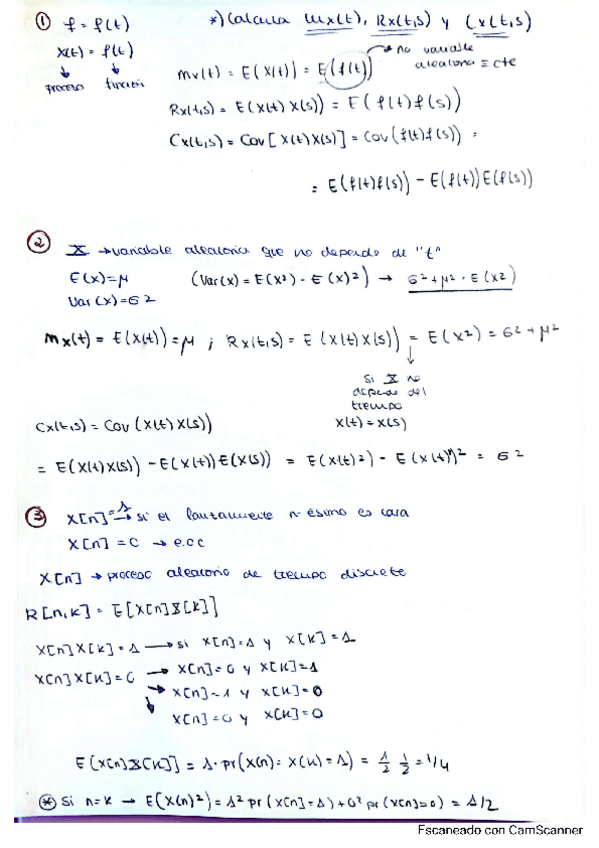 ① f = f(t)    *) Calcula mx(t), Rx(t,s) y Cx(t,s)
X(t) = f(t)
proceso función
mx(t) = E(X(t)) = E(f(t)) → no variable aleatoria ≡ cte
Rx(t,s) = E(X(t) X(s)) = E(f(t)f(s))
Cx(t,s) = Cov[X(t)X(s)] = Cov(f(t)f(s)) =
= E(f(t)f(s)) - E(f(t))E(f(s))
② X → variable aleatoria que no depende de "t"
E(x)=μ    (Var(x) = E(x²) - E(x)²) → σ²+μ² = E(x2)
Var(x)=σ2
mx(t) = E(X(t)) = μ ; Rx(t,s) = E(X(t)X(s)) = E(X²) = σ²+μ²
Si X no
depende del
tiempo
X(t) = X(s)
Cx(t,s) = Cov(X(t)X(s))
= E(X(t)X(s)) - E(X(t))E(X(s)) = E(X(t)²) - E(X(t))² = σ²
③ X[n]=1 → si el lanzamiento n-ésimo es cara
X[n] = 0 → e.o.c
X[n] → proceso aleatorio de tiempo discreto
R[n,k] = E[X[n]X[k]]
X[n]X[k]=1 → si X[n]=1 y X[k]=1
X[n]X[k]=0 → X[n]=0 y X[k]=1
→ X[n]=1 y X[k]=0
X[n]=0 y X[k]=0
E[X[n]X[k]] = 1·pr(X(n)=X(k)=1) = 1/2 1/2 = 1/4
* Si n=k → E(X(n)²) = 1² pr(X[n]=1)+0² pr(X[n]=0) = 1/2
Escaneado con CamScanner